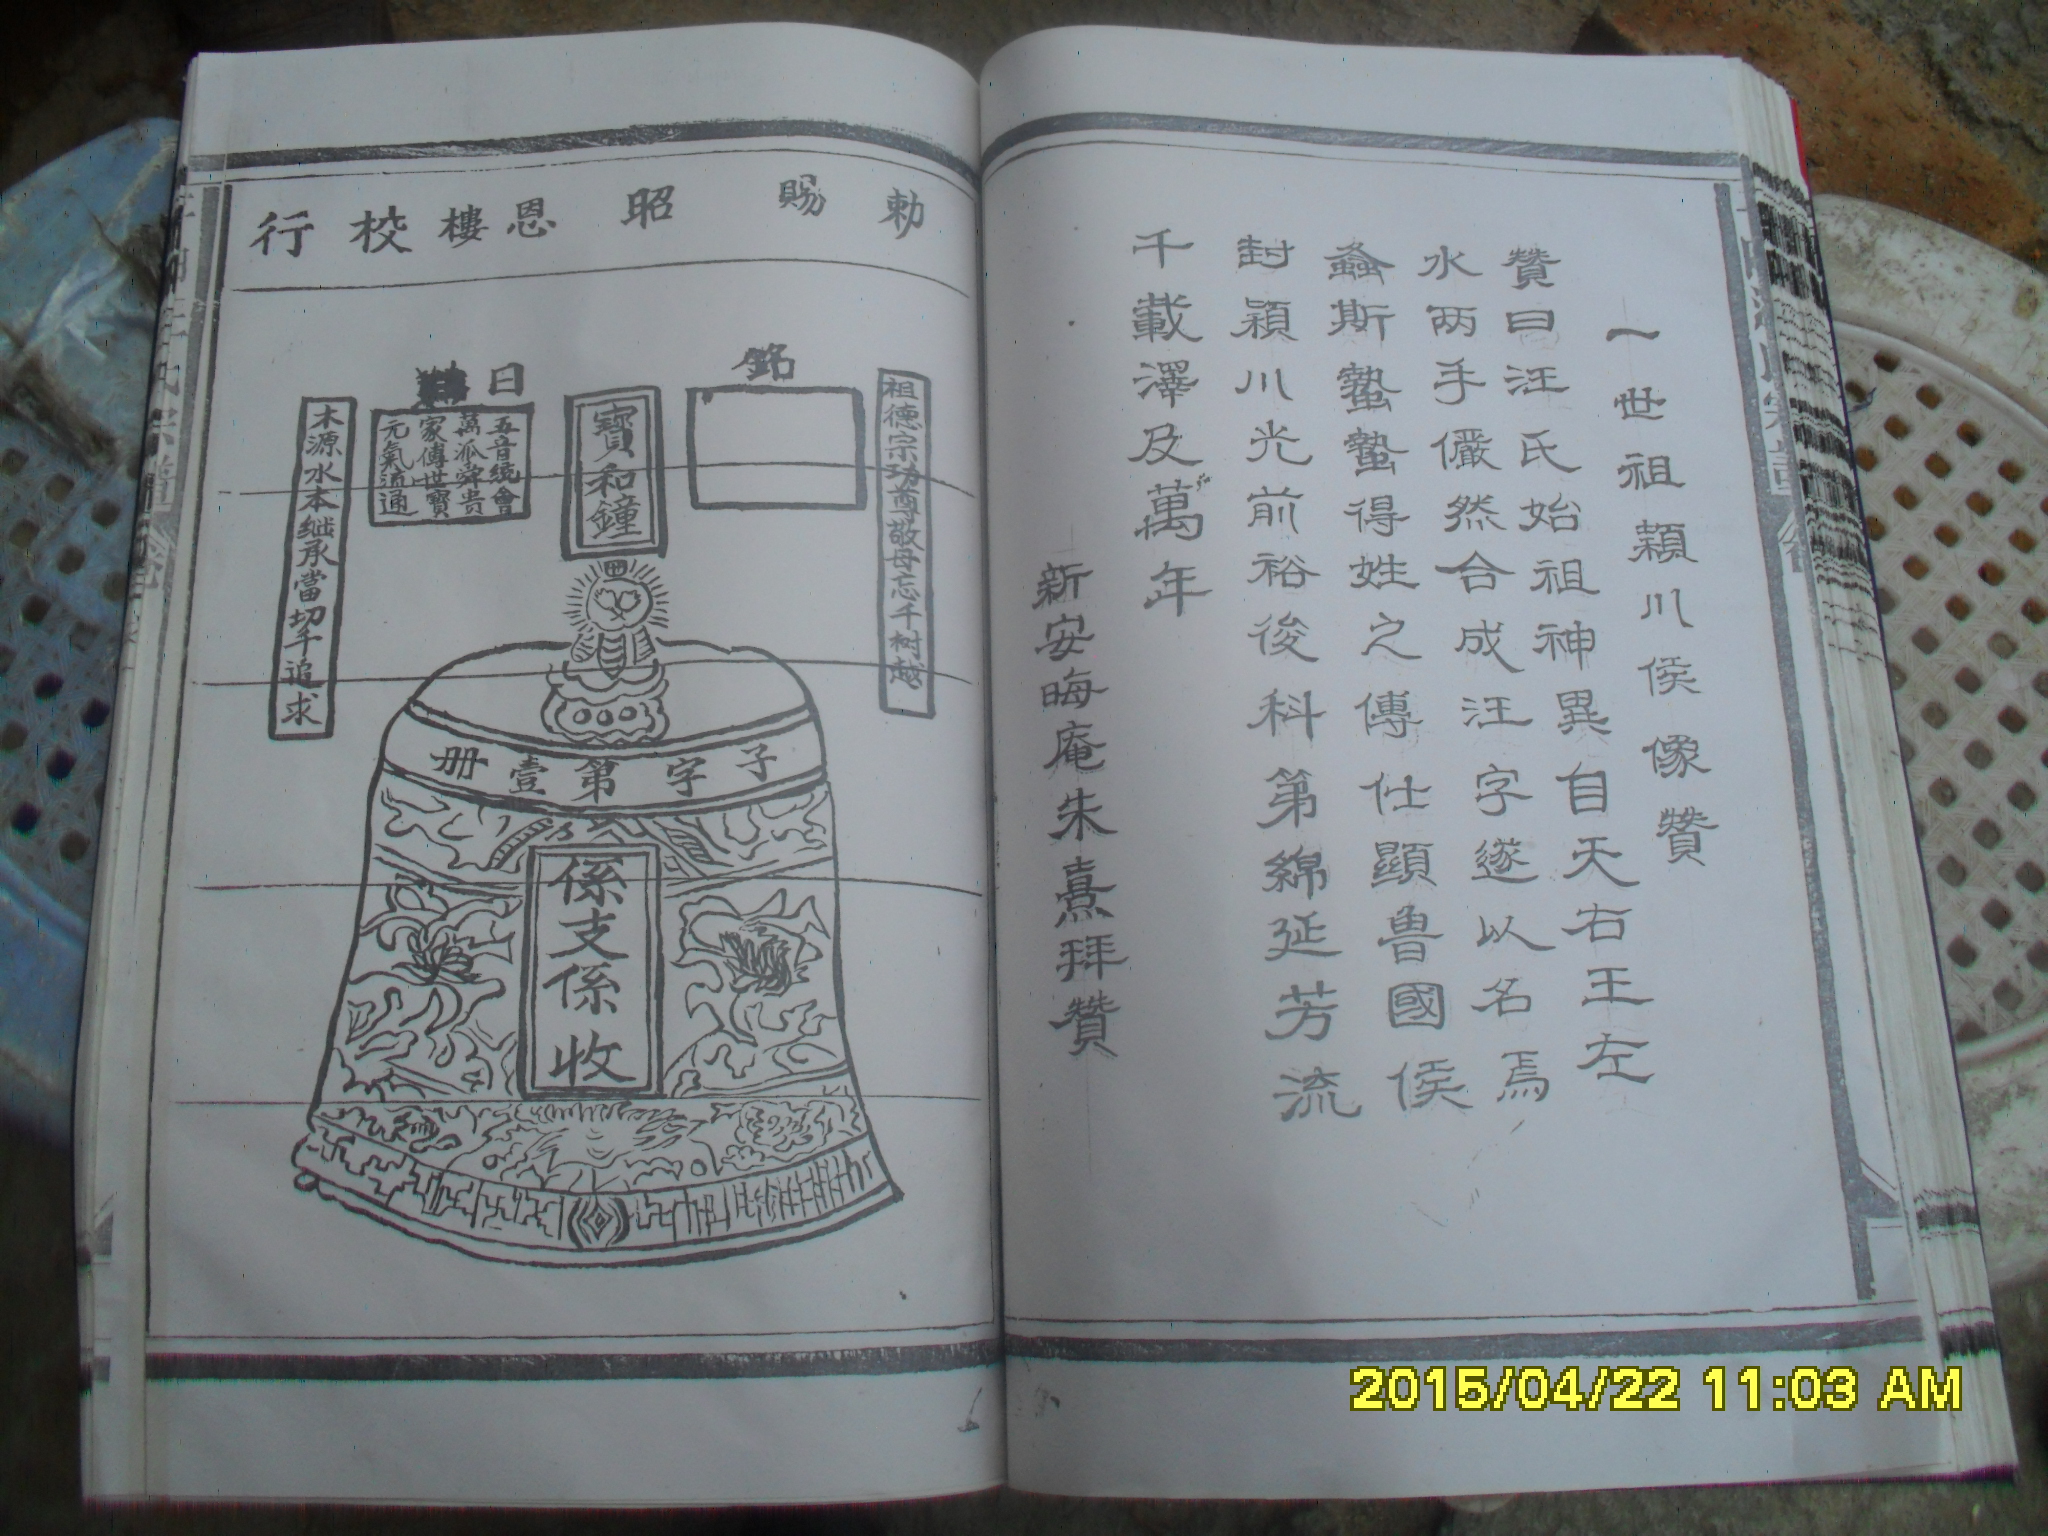 一世祖穎川侯像贊
贊曰汪氏始祖神異自天右王左
水两手儼然合成汪字遂以名焉
螽斯蟄蟄得姓之傳仕顯魯國侯
封穎川光前裕後科第綿延芳流
千載澤及萬年
新安晦庵朱熹拜贊
勅賜昭恩樓校行
祖德宗功尊敬母忘千树越
銘
寶和鐘
曰
五音統會
萬派舜贵
家傳世寶
元氣流通
木源水本继承當切千追求
子字第壹册
係支係收
2015/04/22 11:03 AM